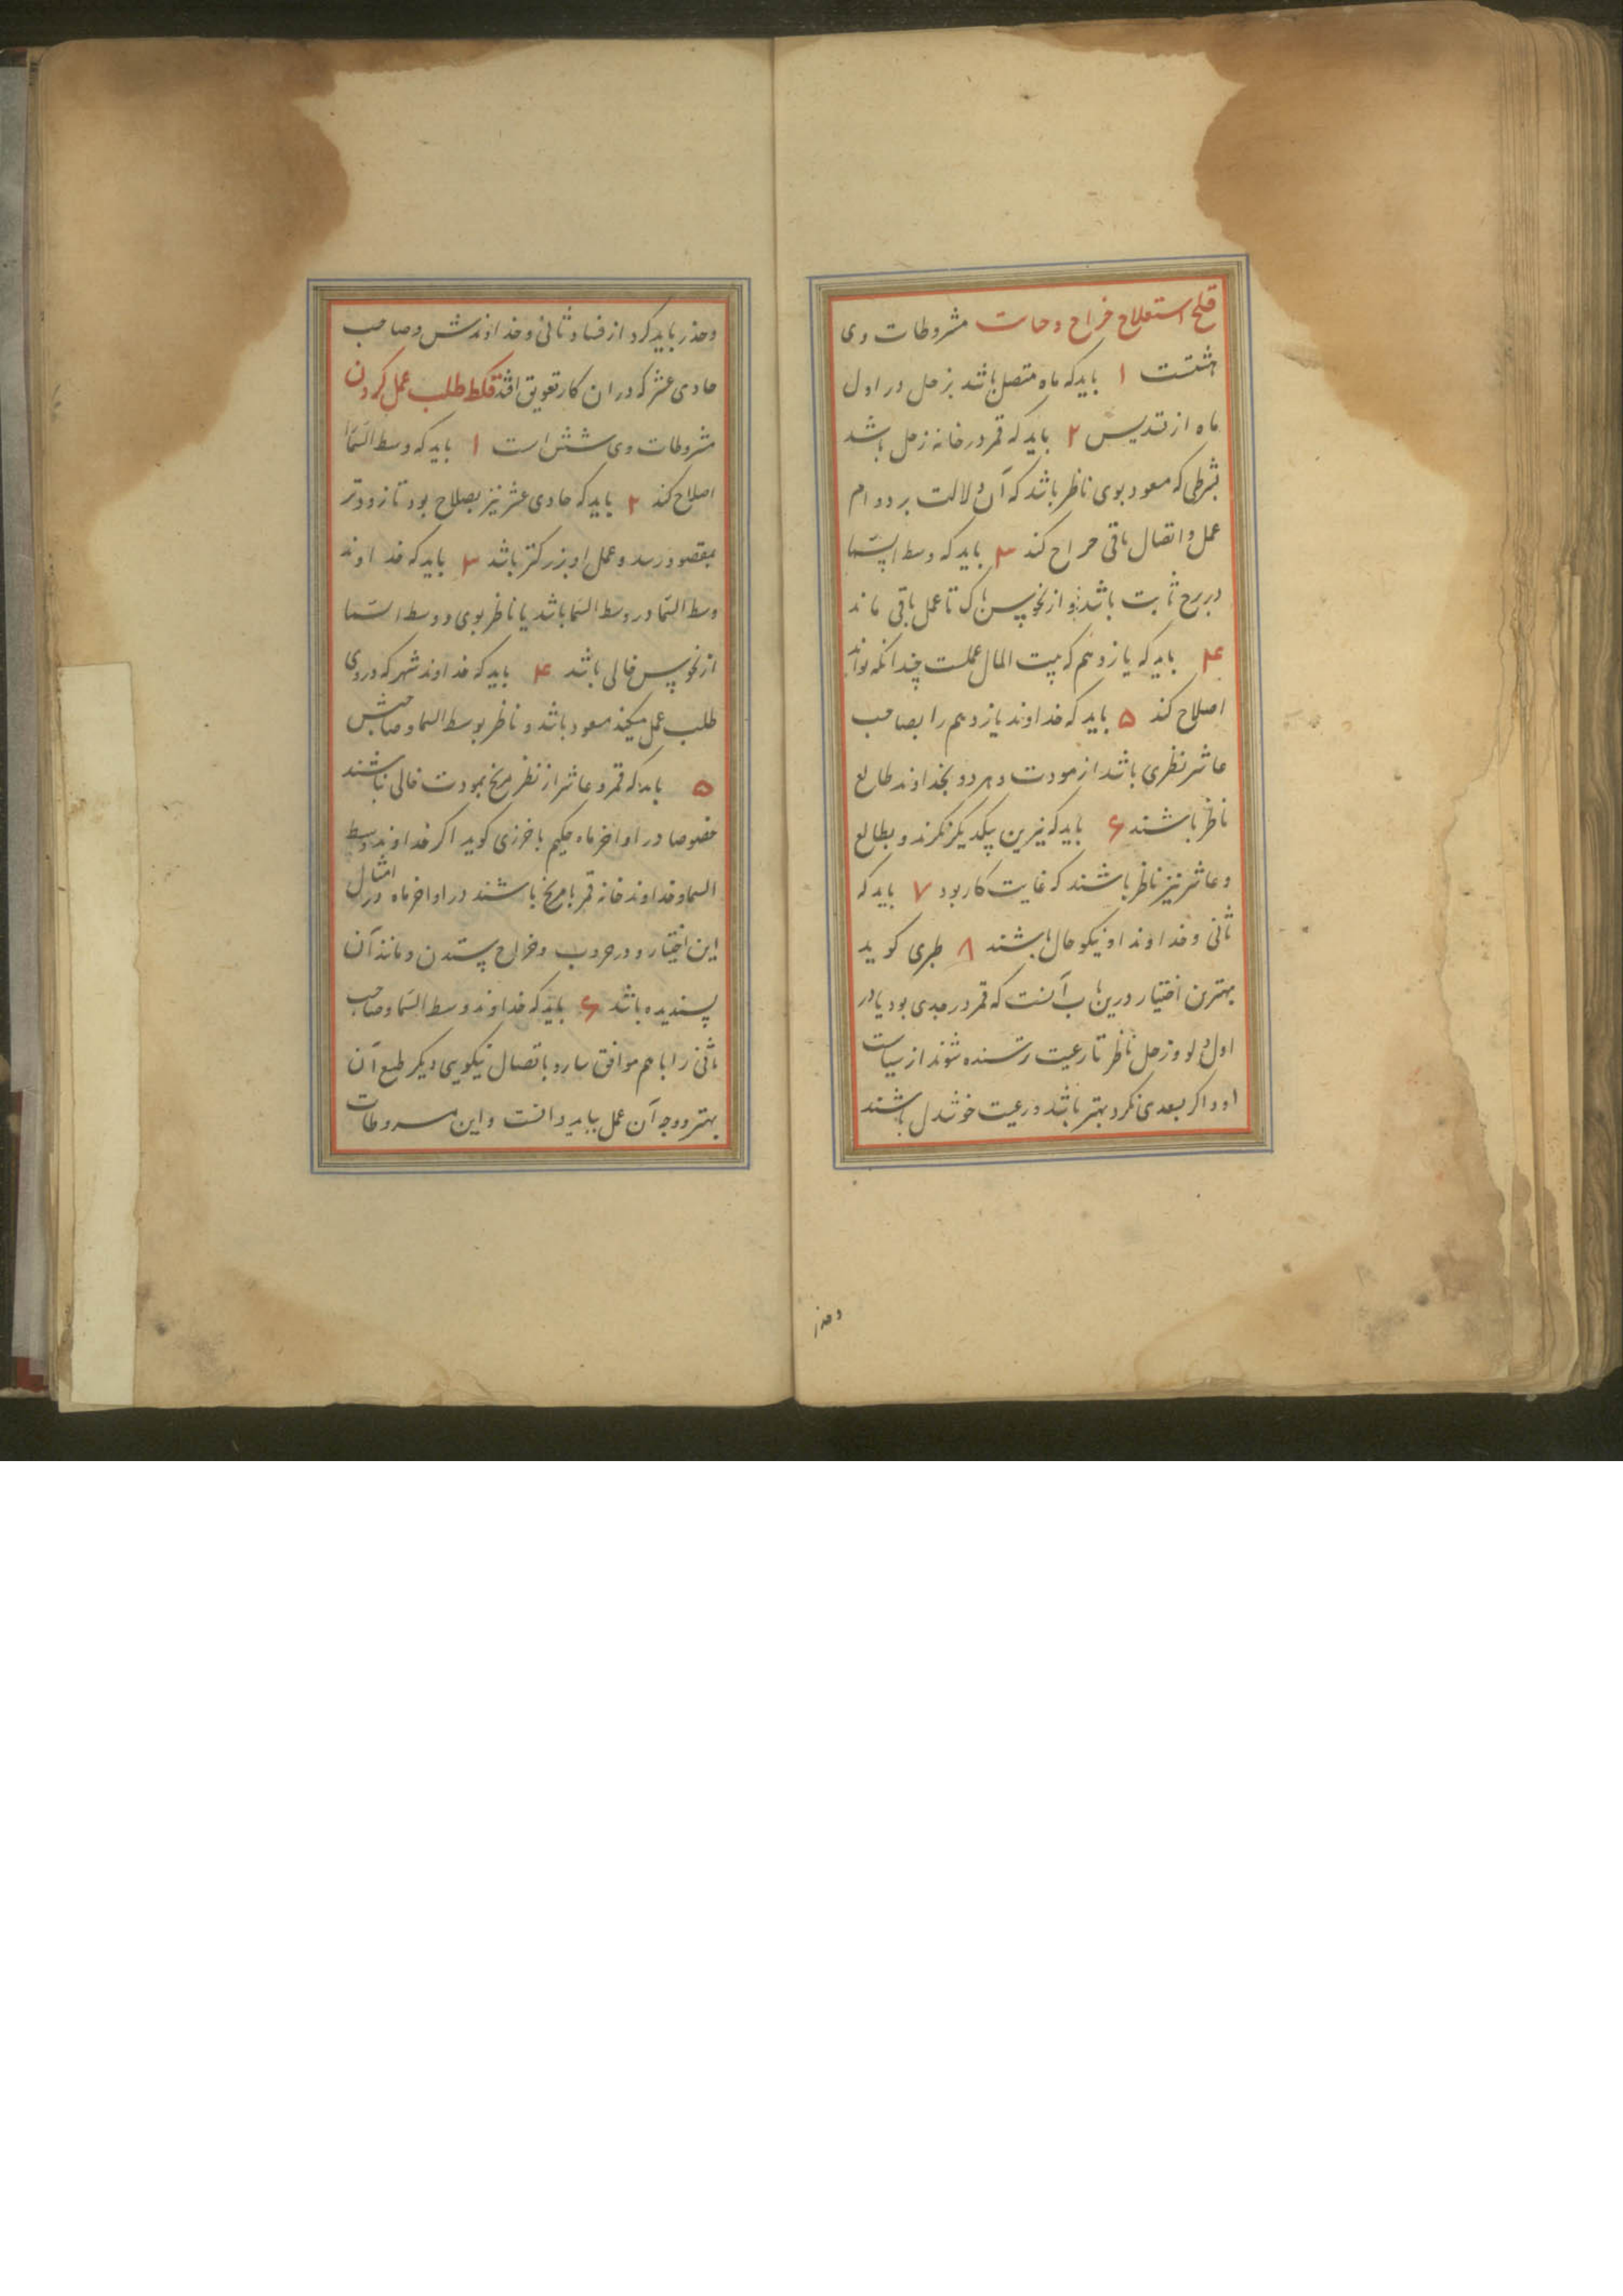 قلح استعلاح خراج وحات مشروطات وی
هشتست ۱ باید که ماه متصل باشد بزحل در اول
ماه از تسدیس ۲ باید که قمر در خانه زحل باشد
بشرطی که مسعود بوی ناظر باشد که آن دلالت بر دوام
عمل و اتصال باقی خراج کند ۳ باید که وسط السما
در برج ثابت باشد و از نحوس پاک تا عمل باقی ماند
۴ باید که یازدهم که بیت المال عملست چندانکه تواند
اصلاح کند ۵ باید که خداوند یازدهم را بصاحب
عاشر نظری باشد از مودت و هر دو بخداوند طالع
ناظر باشند ۶ باید که نیرین بیکدیگر نکرند و بطالع
و عاشر نیز ناظر باشند که غایت کار بود ۷ باید که
ثانی و خداوند او نیکو حال باشند ۸ طبری کوید
بهترین اختیار درین باب آنست که قمر در جدی بود یا در
اول دلو و زحل ناظر تا رعیت ترسنده شوند از سیاست
او و اکر بسعدی نکرد بهتر باشد و رعیت خوشدل باشند
وحذر
وحذر باید کرد از فساد ثانی و خداوندش و صاحب
حادی عشر که در ان کار تعویق افتد قلط طلب عمل کردن
مشروطات وی شش است ۱ باید که وسط السما
اصلاح کند ۲ باید که حادی عشر نیز بصلاح بود تا زودتر
بمقصود رسد و عمل او بزرکتر باشد ۳ باید که خداوند
وسط السما در وسط السما باشد یا ناظر بوی و وسط السما
از نحوس خالی باشد ۴ باید که خداوند شهر که در وی
طلب عمل میکند مسعود باشد و ناظر بوسط السما و صاحبش
۵ باید که قمر و عاشر از نظر مریخ بمودت خالی نباشند
خصوصا در اواخر ماه حکیم باخرزی کوید اکر خداوند وسط
السما و خداوند خانه قمر با مریخ باشند در اواخر ماه در امثال
این اختیار و در حروب و خراج ستدن و مانند آن
پسندیده باشد ۶ باید که خداوند وسط السما و صاحب
ثانی را با هم موافق سازد باتصال نیکویی دیکر طبع آن
بهتر و وجه آن عمل بباید دانست و این مشروطات